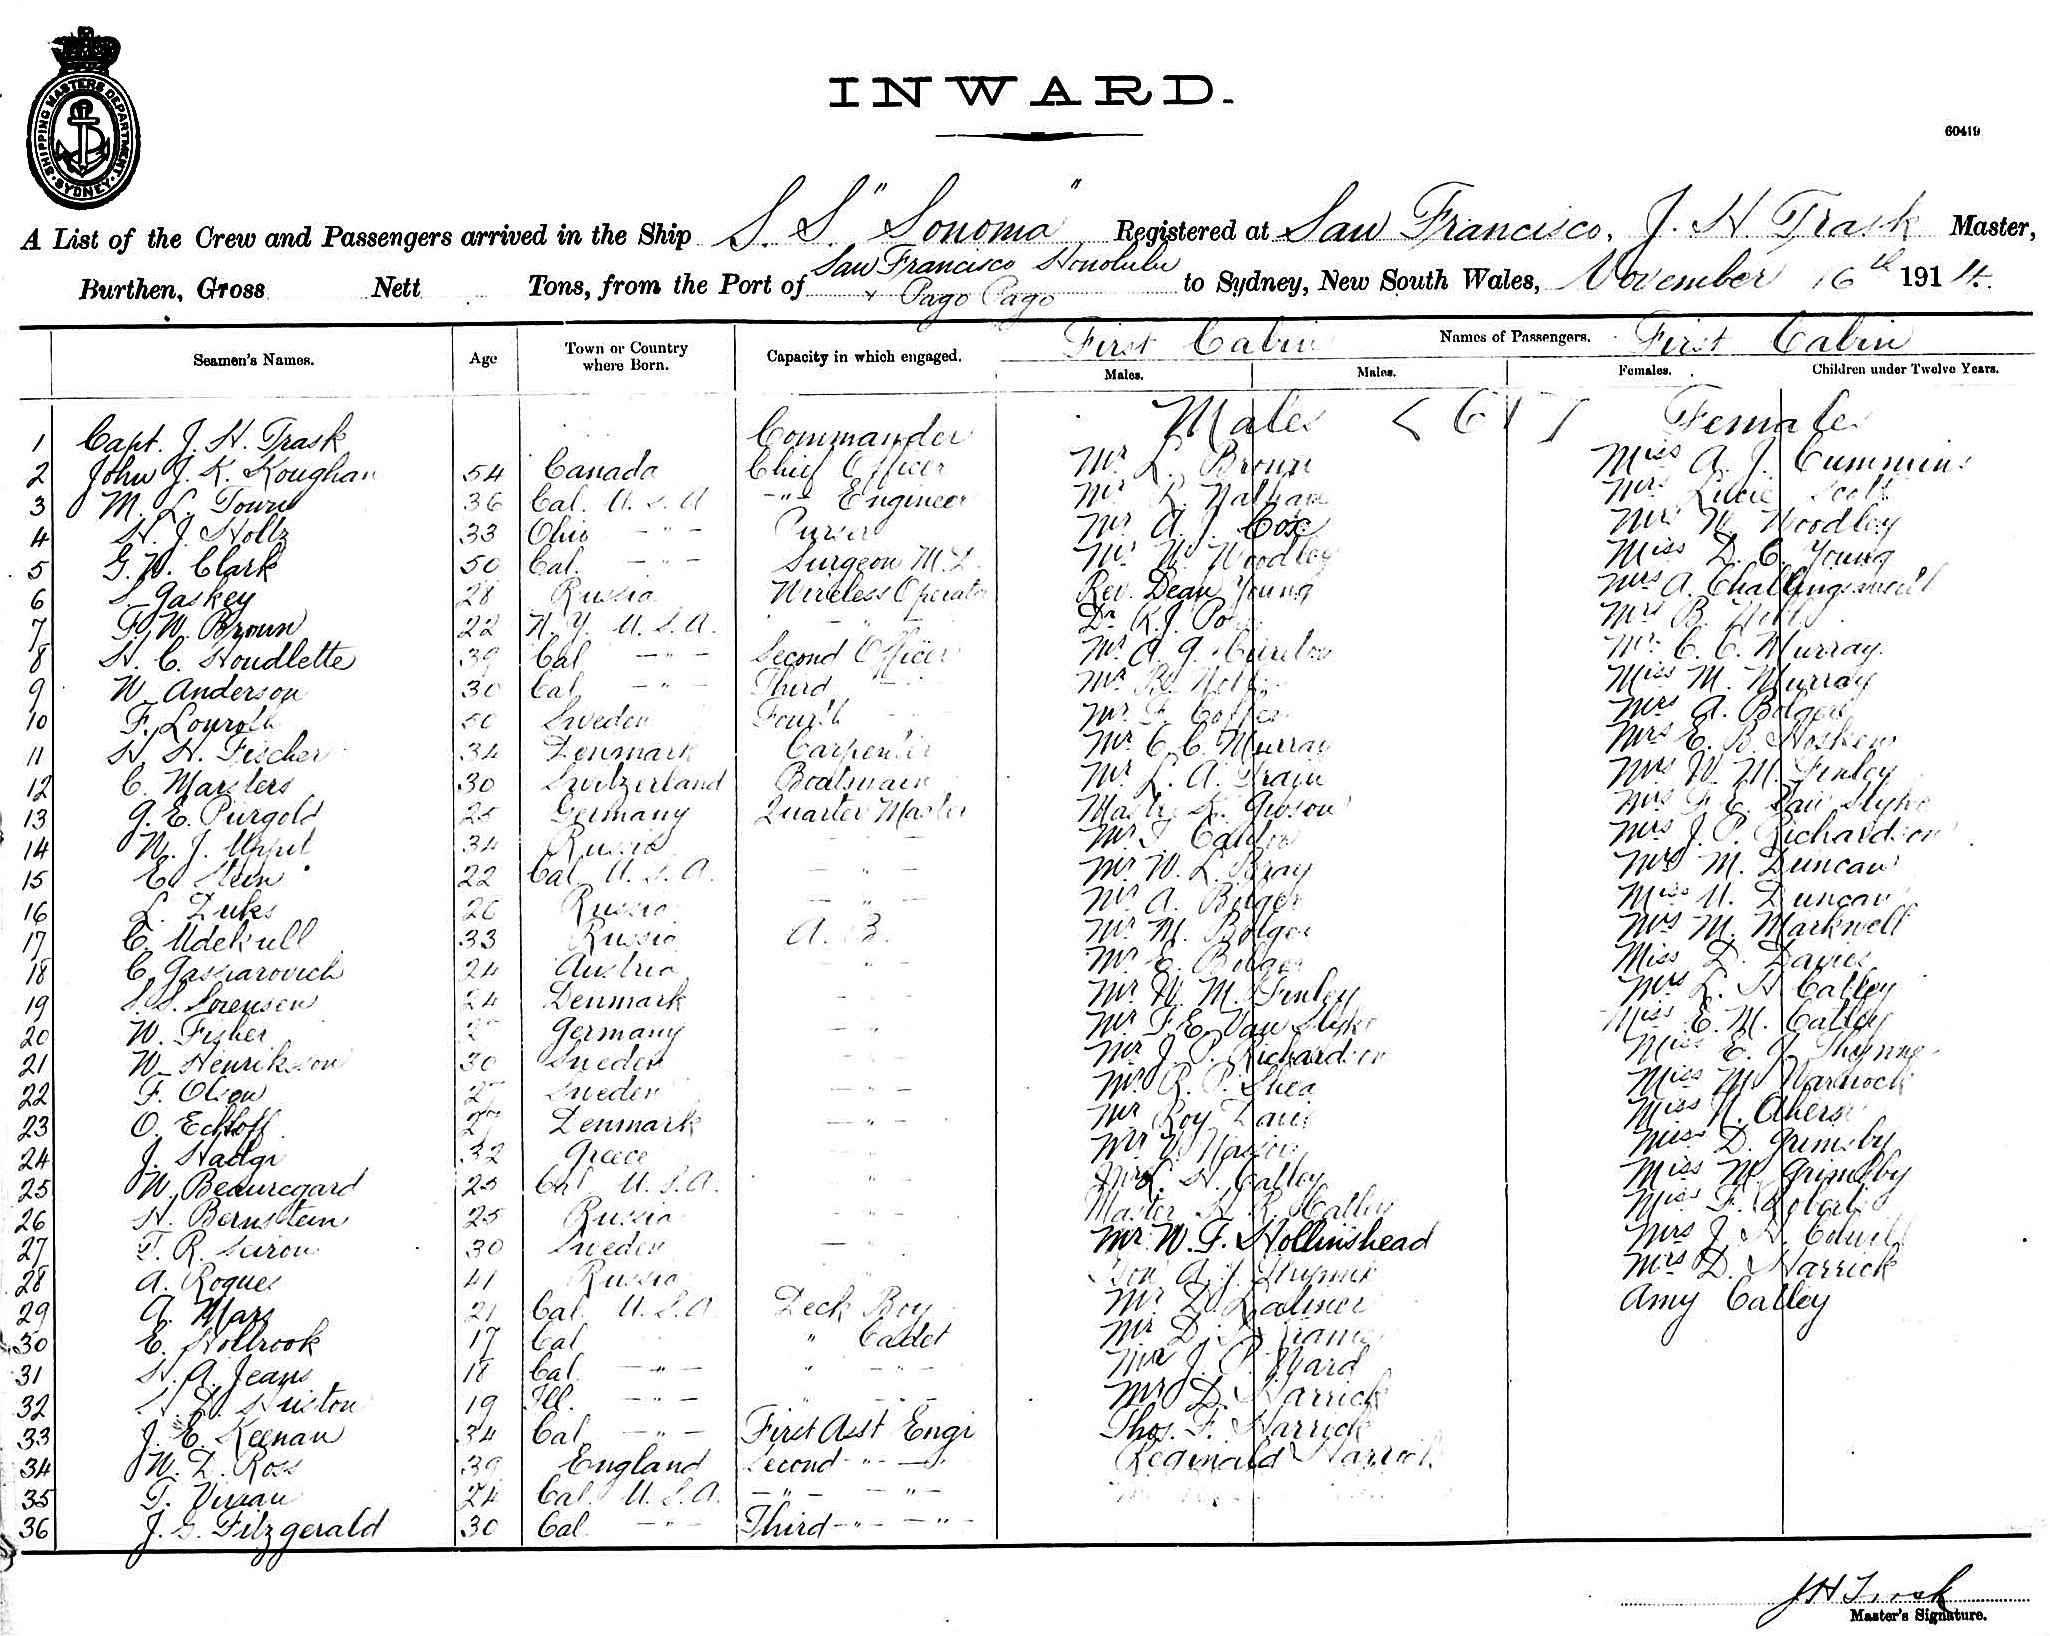 SHIPPING MASTERS DEPARTMENT
SYDNEY
INWARD.
60419
A List of the Crew and Passengers arrived in the Ship S. S. "Sonoma" Registered at San Francisco, J. H Trask Master,
Burthen, Gross Nett Tons, from the Port of San Francisco Honolulu & Pago Pago to Sydney, New South Wales, November 16th 1914.
Seamen's Names. Age Town or Country where Born. Capacity in which engaged. First Cabin Names of Passengers. First Cabin
Males. Males. Females. Children under Twelve Years.
Males Females
1 Capt. J. H. Trask Commander
2 John J. K. Koughan 54 Canada Chief Officer Mr L. Brown Miss A. J. Cummins
3 M. L. Town 36 Cal. U. S. A -"- Engineer Mr R. Nathan Mrs Lucie Scott
4 H. J. Holtz 33 Ohio -"- Purser Mr A. J. Cox Mrs W. Woodley
5 G. W. Clark 50 Cal. -"- Surgeon M.D. Mr W. Woodley Miss D. C. Young
6 S. Gaskey 28 Russia Wireless Operator Rev. Dean Young Mrs A. Challingsworth
7 F. W. Brown 22 N. Y. U. S. A. -"- Dr R. J. Mrs B.
8 H. C. Houdlette 39 Cal -"- Second Officer Mr A. G. Mrs C. C. Murray
9 W. Anderson 30 Cal. -"- Third Mr Miss M. Murray
10 F. 50 Sweden Fourth Mr F. Mrs A. Bolger
11 H. H. Fischer 34 Denmark Carpenter Mr C. C. Murray Mrs E. B. Hosken
12 C. Marsters 30 Switzerland Boatswain Mr L. A. Mrs W. M. Finley
13 G. E. Purgold 25 Germany Quarter Master Gibson Mrs F. E. Van Slyke
14 W. J. 34 Russia Mr Mrs J. P. Richardson
15 E. Stein 22 Cal U. S. A. -"- Mr W. L. Bray Mrs M. Duncan
16 L. Duks 26 Russia -"- Mr A. Bolger Miss U. Duncan
17 C. Udekull 33 Russia A. B. Mr M. Bolger Mrs M. Markwell
18 C. Gasparovich 24 Austria -"- Mr E. Bolger Miss D. Davies
19 S. S. Sorensen 24 Denmark -"- Mr W. M. Finley Mrs L. H. Calley
20 W. Fisher Germany -"- Mr F. E. Van Slyke Miss E. M. Calley
21 W. Henrikson 30 Sweden -"- Mr J. P. Richardson Miss E. J. Thynne
22 F. Olson 27 Sweden -"- Mr R. P. Shea Miss M. Warnock
23 O. Echtoff 27 Denmark -"- Mr Roy Davis Miss N. Ahern
24 J. Hadgi 32 Greece -"- Mr Miss D. Grimsby
25 W. Beauregard 25 Cal U. S. A. -"- Mr L. H. Calley Miss M. Grimsby
26 H. Bernstein 25 Russia -"- Master H. R. Calley Miss F. Roberts
27 T. R. 30 Sweden -"- Mr. W. F. Hollinshead Mrs J. H. Colwill
28 A. Roques 41 Russia -"- Hon. A. J. Thynne Mrs D. Harrick
29 A. Mars 21 Cal. U. S. A Deck Boy Mr D. Latimer Amy Calley
30 E. Holbrook 17 Cal " Cadet Mr D.
31 H. A. Jeans 18 Cal. -"- " -"- Mr J. P. Ward
32 H. D. Huston 19 Ill. -"- -"- Mr D. Harrick
33 J. E. Keenan 34 Cal -"- First Asst Engr Thos. F. Harrick
34 W. D. Ross 39 England Second -"- -"- Reginald Harrick
35 T. Vivian 24 Cal. U. S. A. -"- -"-
36 J. G. Fitzgerald 30 Cal. -"- Third -"- -"-
J H Trask
Master's Signature.